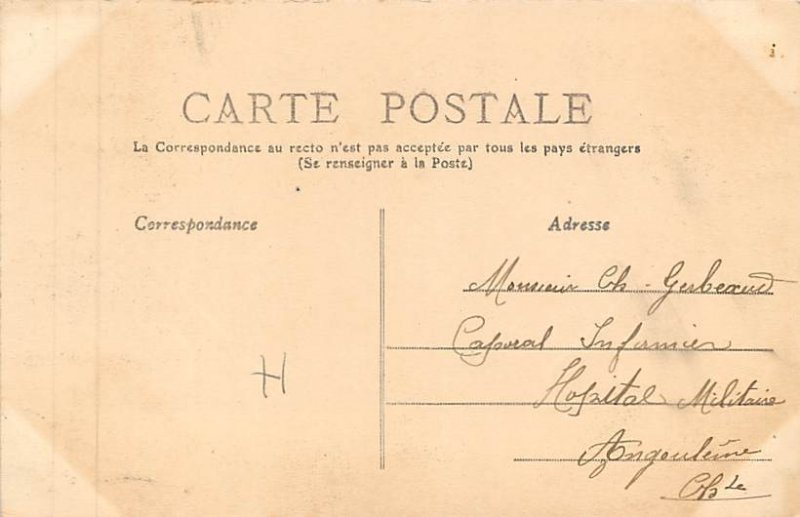 CARTE POSTALE
La Correspondance au recto n'est pas acceptée par tous les pays étrangers
(Se renseigner à la Poste)
Correspondance
Adresse
Monsieur Ch. Gerbeaud
Caporal Infirmier
Hopital Militaire
Angoulème
Ch le
H